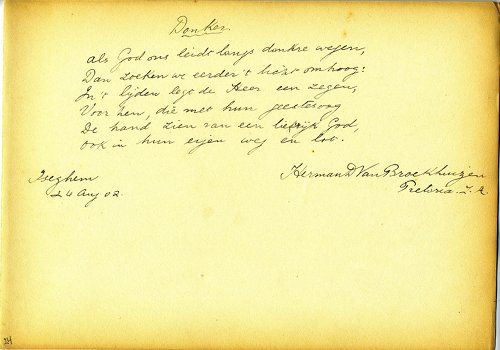 Donker.
Als God ons leidt langs donkre wegen,
Dan zoeken we eerder 't licht omhoog:
In 't lijden legt de Heer een zegen,
Voor hen, die met hun geestesoog
De hand zien van een liefrijk God,
Ook in hun eigen weg en lot.
Iseghem
24 Aug 02.
Herman D Van Broekhuizen
Pretoria. Z. A
24